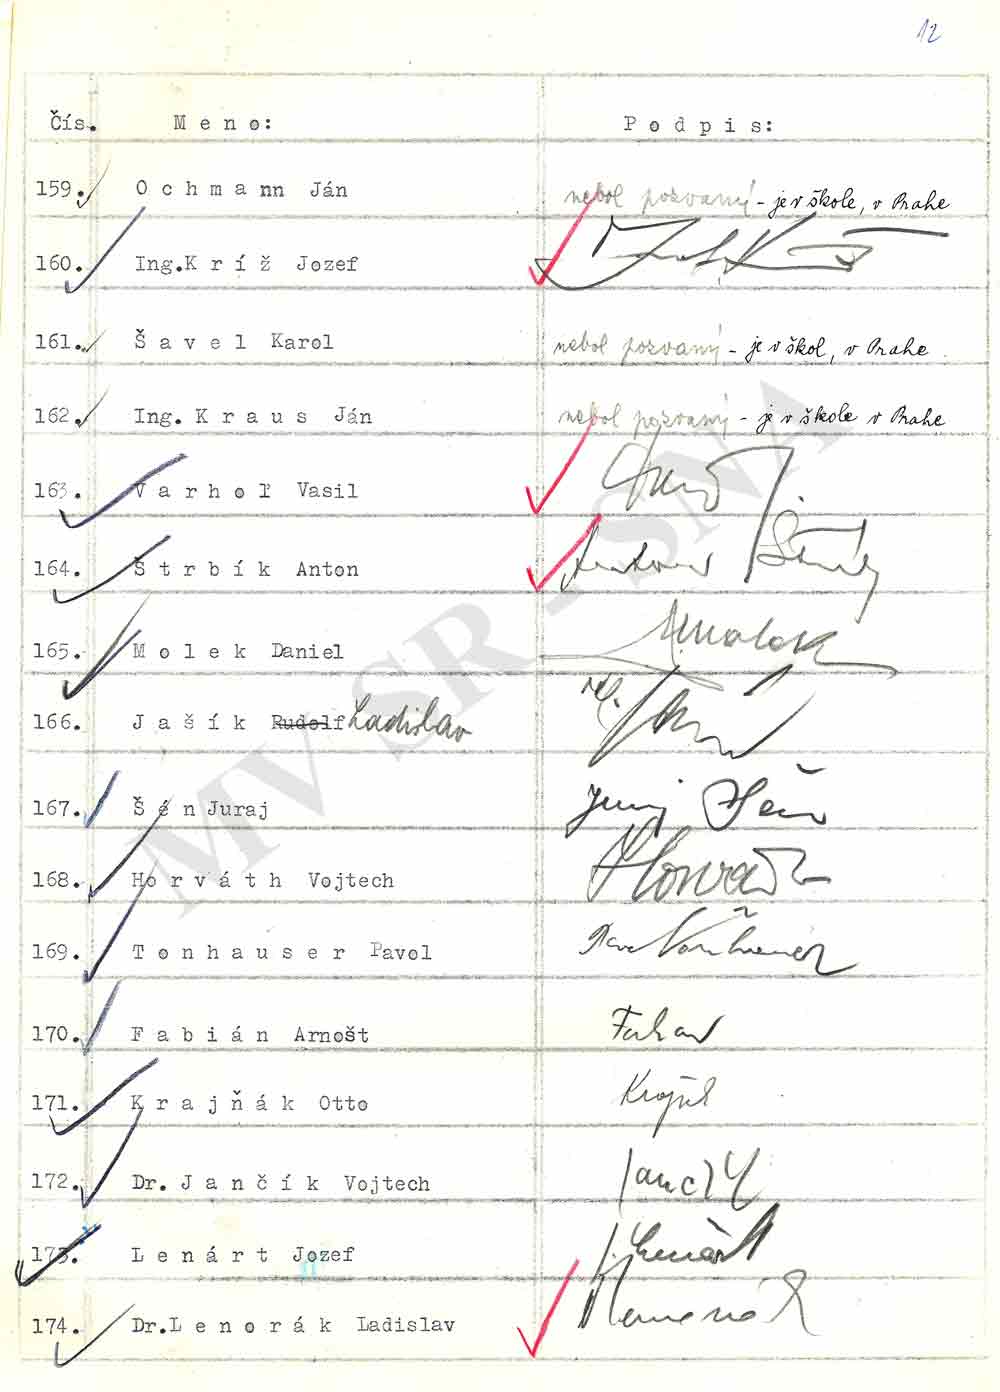 12
Čís. Meno: Podpis:
159. Ochmann Ján nebol pozvaný - je v škole, v Prahe
160. Ing. Kríž Jozef
161. Šavel Karol nebol pozvaný - je v škol, v Prahe
162. Ing. Kraus Ján nebol pozvaný - je v škole v Prahe
163. Varhoľ Vasil
164. Štrbík Anton
165. Molek Daniel
166. Jašík Rudolf Ladislav
167. Šén Juraj
168. Horváth Vojtech
169. Tonhauser Pavol
170. Fabián Arnošt
171. Krajňák Otto
172. Dr. Jančík Vojtech
173. Lenárt Jozef
174. Dr. Lenorák Ladislav
MV SR - SNA